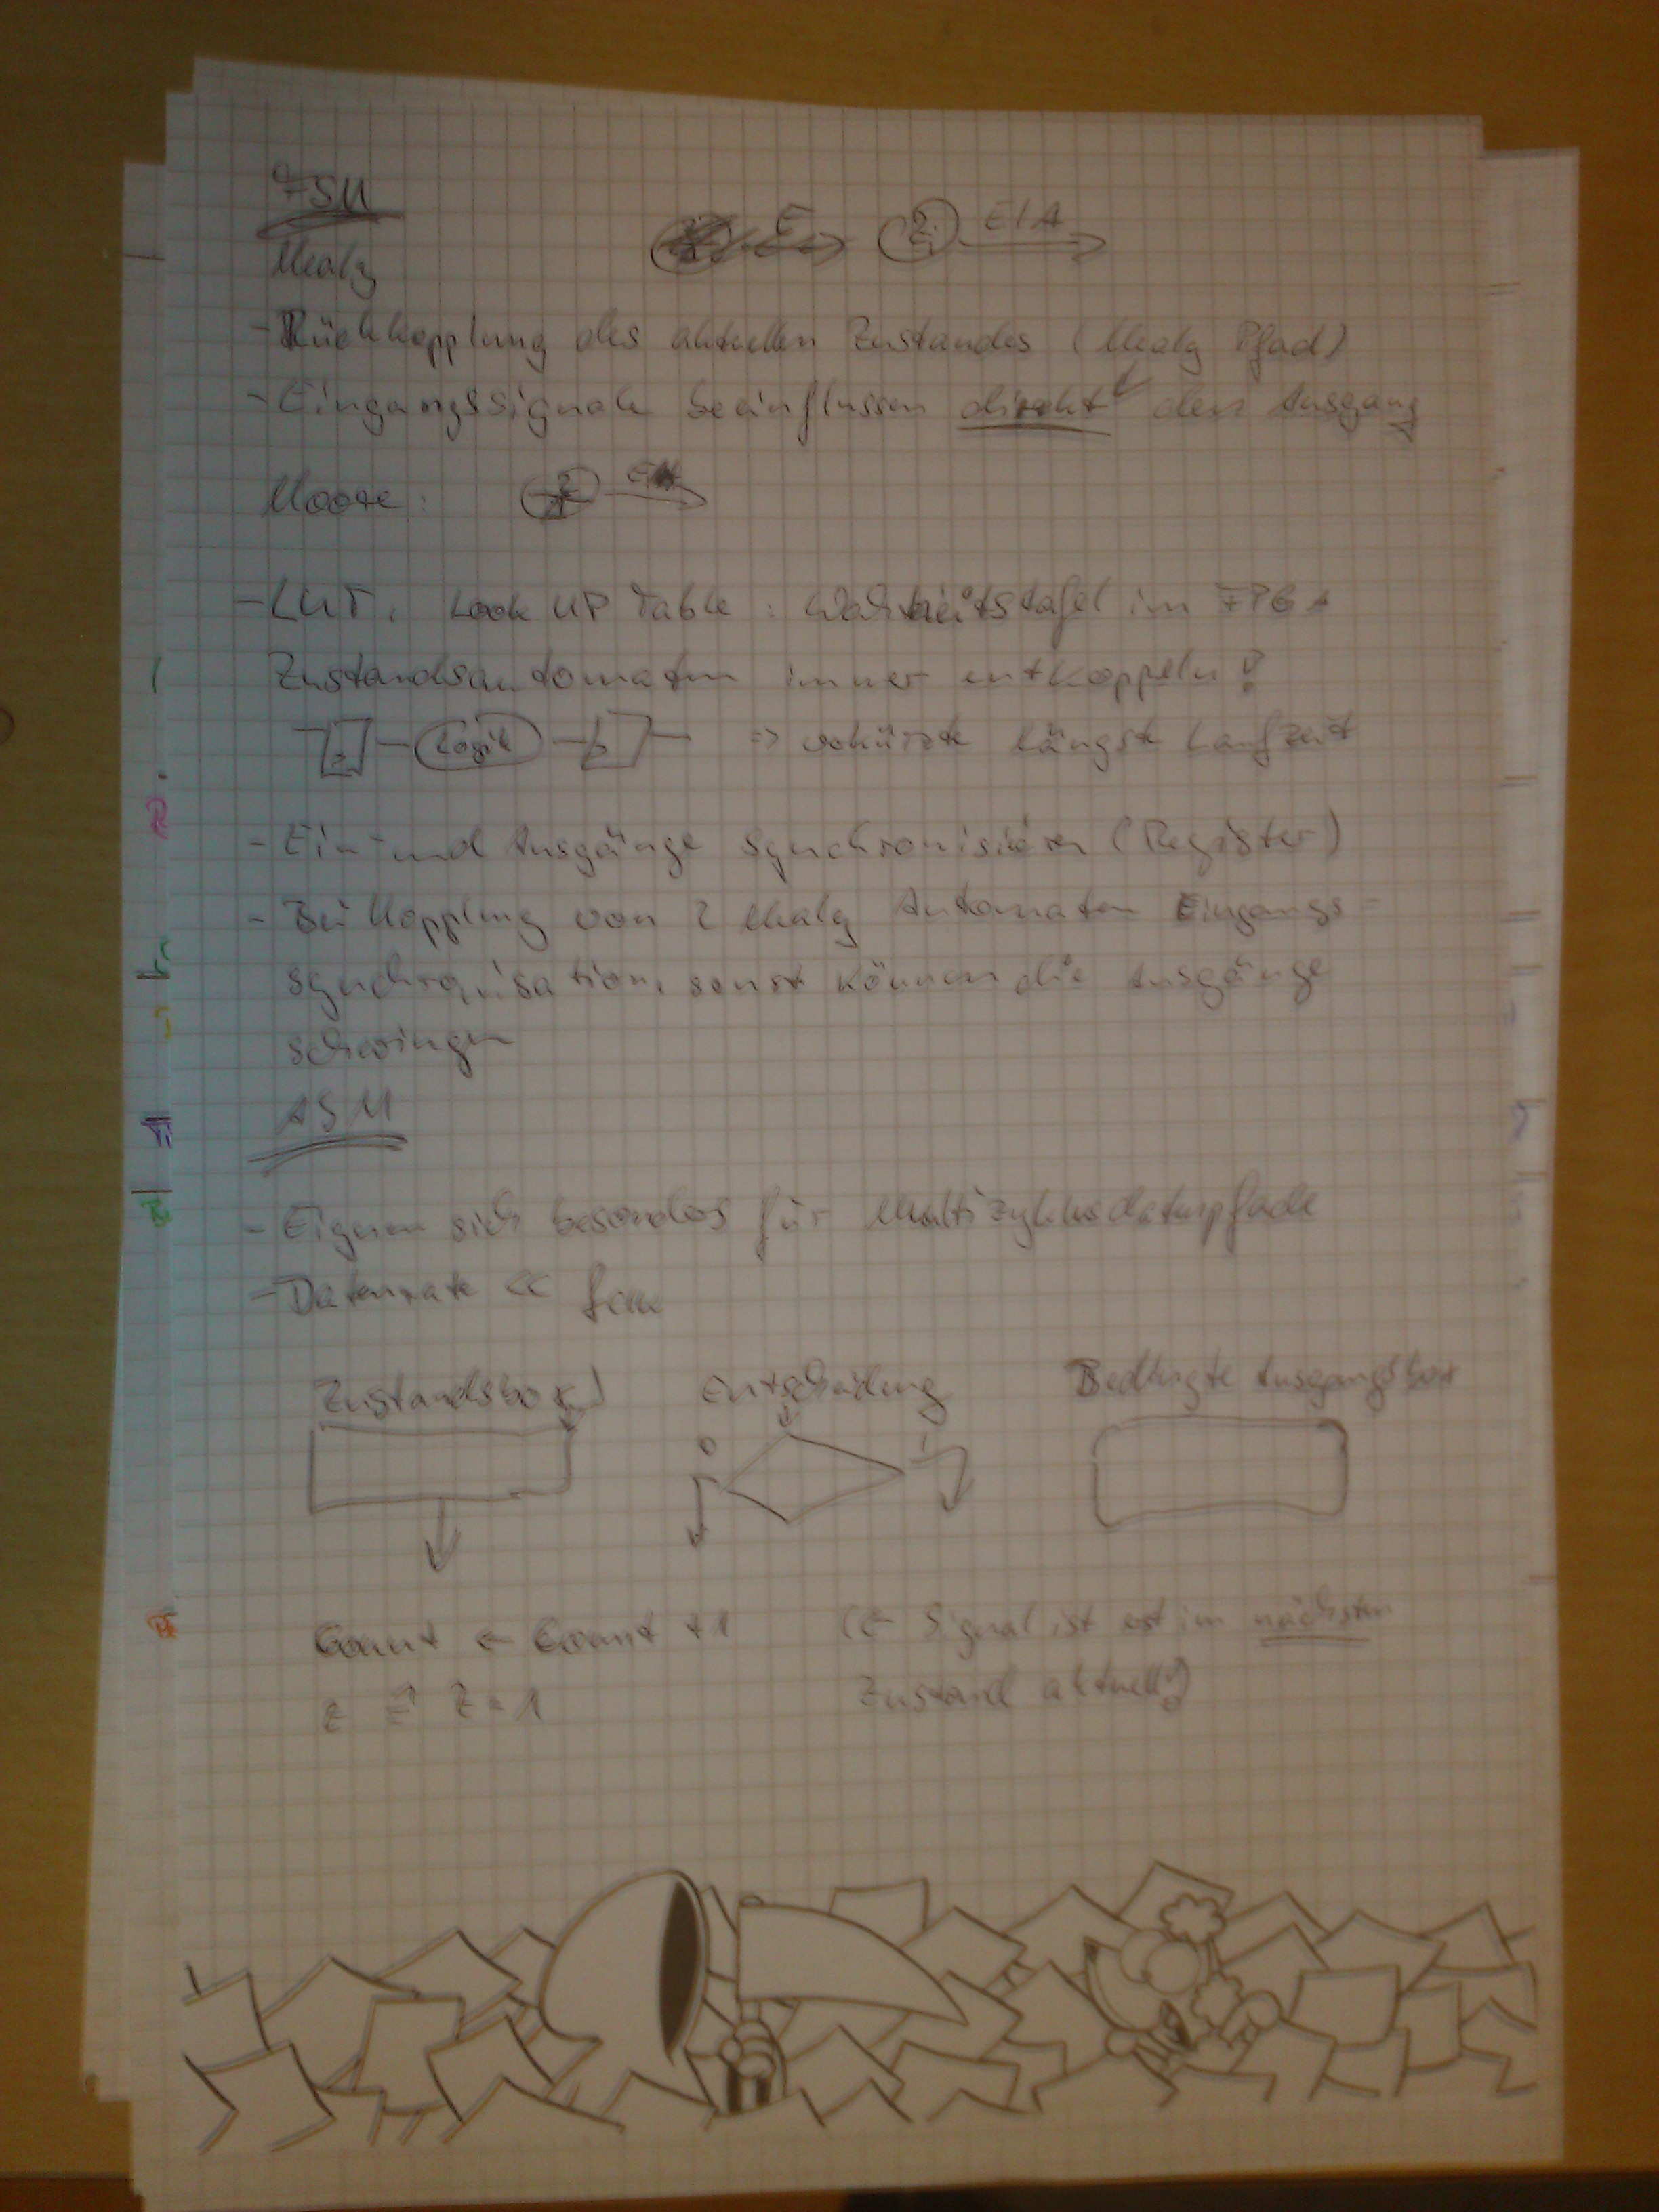 FSM
Mealy E Zi E/A
- Rückkopplung des aktuellen Zustandes (Mealy Pfad)
- Eingangssignale beeinflussen direkt den Ausgang
Moore: Z E
- LUT, Look UP Table : Wahrheitstafel im FPGA
Zustandsautomaten immer entkoppeln!
Logik => verkürzte längste Laufzeit
- Ein- und Ausgänge Synchronisieren (Register)
- Bei Kopplung von 2 Mealy Automaten Eingangs-
synchronisation, sonst können die Ausgänge
schwingen
ASM
- Eignen sich besonders für Multizyklusdatenpfade
- Datenrate <<
Zustandsbox Entscheidung Bedingte Ausgangsbox
0 1
Count ← Count +1 (← Signal ist erst im nächsten
z ≙ z=1 Zustand aktuell!)